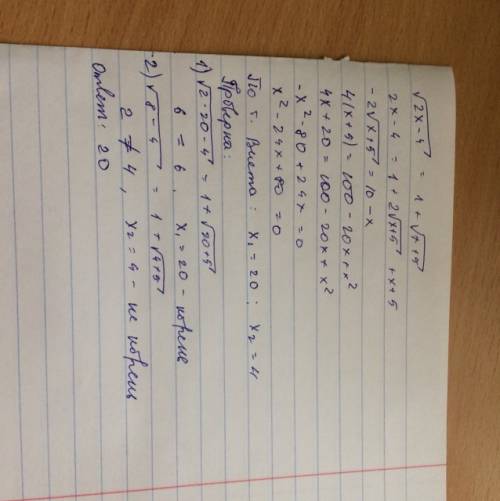 √2x-4 = 1 + √x+5
2x-4 = 1 + 2√x+5 + x+5
-2√x+5 = 10-x
4(x+5) = 100 - 20x + x²
4x+20 = 100 - 20x + x²
-x² - 80 + 24x = 0
x² - 24x + 80 = 0
По т. Виета: x₁ = 20; x₂ = 4
Проверка:
1) √2·20-4 = 1 + √20+5
6 = 6, x₁ = 20 - корень
2) √8-4 = 1 + √4+5
2 ≠ 4, x₂ = 4 - не корень
Ответ: 20